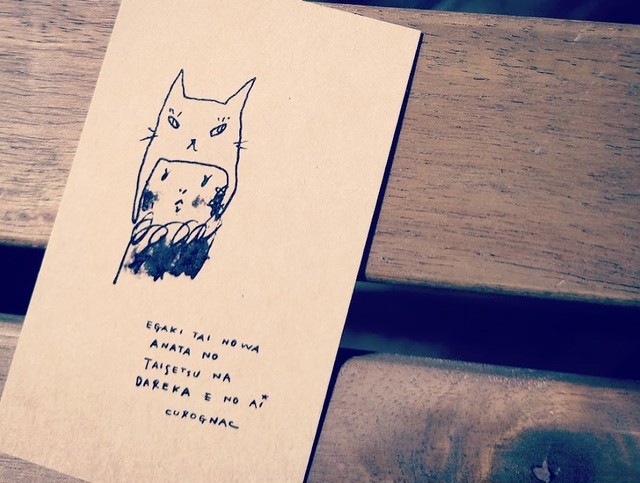 EGAKI TAI NO WA
ANATA NO
TAISETSU NA
DAREKA E NO AI*
CUROGNAC